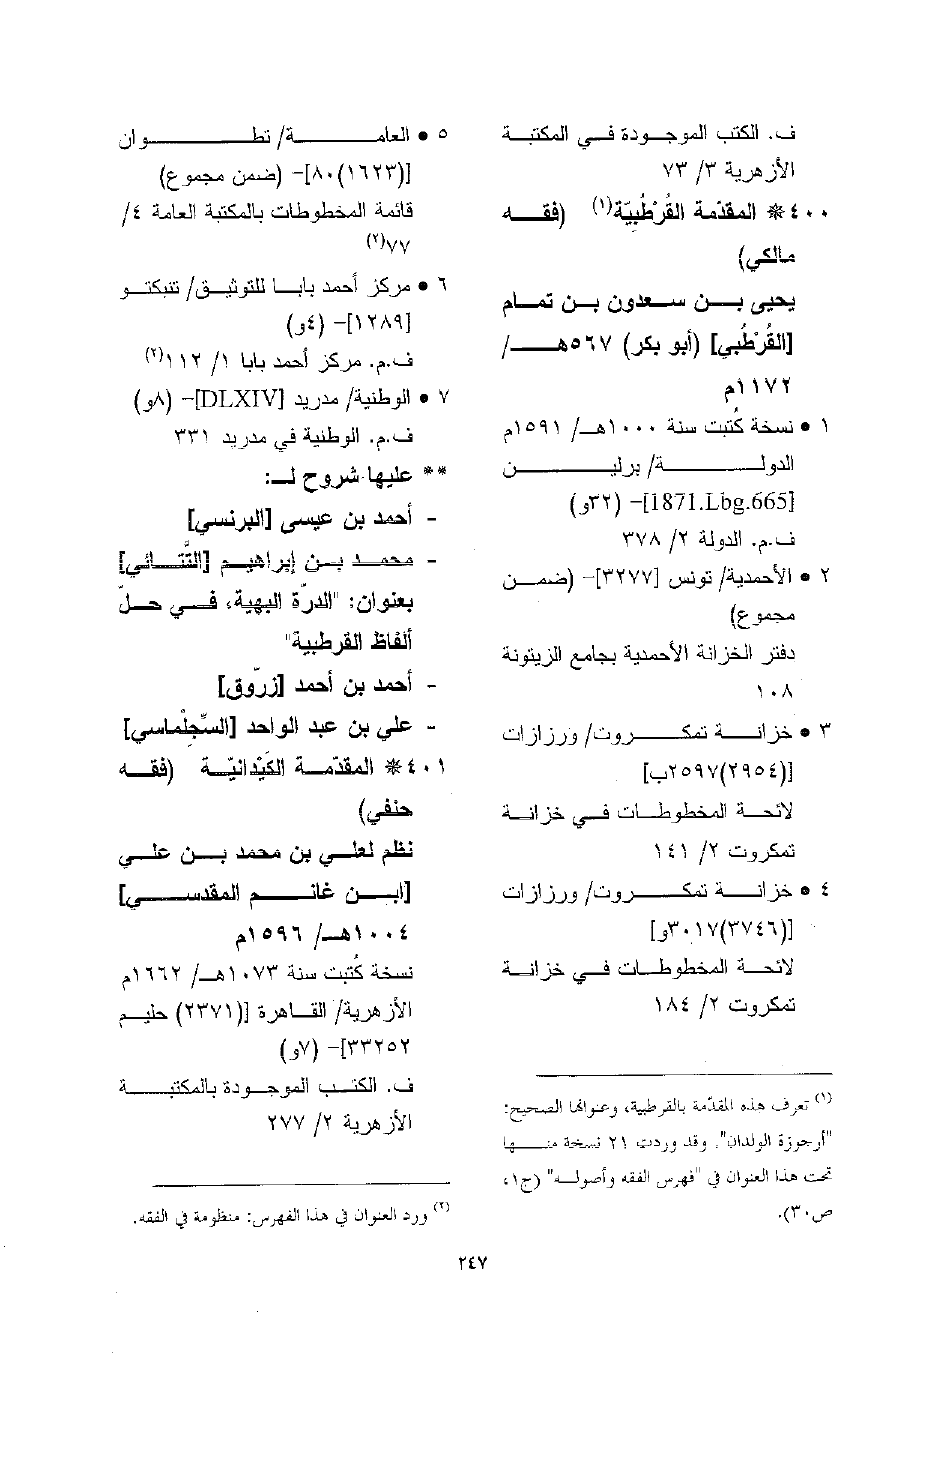 ف. الكتب الموجودة في المكتبة
الأزهرية ٣/ ٧٣
٤٠٠* المقدّمة القُرْطُبيّة(١) (فقه
مالكي)
يحيى بن سعدون بن تمام
[القُرْطُبي] (أبو بكر) ٥٦٧هـ/
١١٧٢م
١ • نسخة كُتبت سنة ١٠٠٠هـ/ ١٥٩١م
الدولة/ برلين
[1871.Lbg.665]- (٣٢و)
ف.م. الدولة ٢/ ٣٧٨
٢ • الأحمدية/ تونس [٣٢٧٧]- (ضمن
مجموع)
دفتر الخزانة الأحمدية بجامع الزيتونة
١٠٨
٣ • خزانة تمكروت/ ورزازات
[(٢٩٥٤)٢٥٩٧ب]
لائحة المخطوطات في خزانة
تمكروت ٢/ ١٤١
٤ • خزانة تمكروت/ ورزازات
[(٣٧٤٦)٣٠١٧و]
لائحة المخطوطات في خزانة
تمكروت ٢/ ١٨٤
(١) تعرف هذه المقدّمة بالقرطبية، وعنوانها الصحيح:
"أرجوزة الولدان". وقد وردت ٢١ نسخة منها
تحت هذا العنوان في "فهرس الفقه وأصوله" (ج١،
ص٣٠).
٥ • العامة/ تطوان
[(١٦٢٣)٨٠]- (ضمن مجموع)
قائمة المخطوطات بالمكتبة العامة ٤/
٧٧(٢)
٦ • مركز أحمد بابا للتوثيق/ تنبكتو
[١٢٨٩]- (٤و)
ف.م. مركز أحمد بابا ١/ ١١٢(٢)
٧ • الوطنية/ مدريد [DLXIV]- (٨و)
ف.م. الوطنية في مدريد ٣٣١
** عليها شروح لـ:
- أحمد بن عيسى [البرنسي]
- محمد بن إبراهيم [التَّتائي]
بعنوان: "الدرّة البهية، في حلّ
ألفاظ القرطبية"
- أحمد بن أحمد [زرّوق]
- علي بن عبد الواحد [السِّجِلْماسي]
٤٠١* المقدّمة الكَيْدانيّة (فقه
حنفي)
نظم لعلي بن محمد بن علي
[ابن غانم المقدسي]
١٠٠٤هـ/ ١٥٩٦م
نسخة كُتبت سنة ١٠٧٣هـ/ ١٦٦٢م
الأزهرية/ القاهرة [(٢٣٧١) حليم
٣٣٢٥٢]- (٧و)
ف. الكتب الموجودة بالمكتبة
الأزهرية ٢/ ٢٧٧
(٢) ورد العنوان في هذا الفهرس: منظومة في الفقه.
٢٤٧